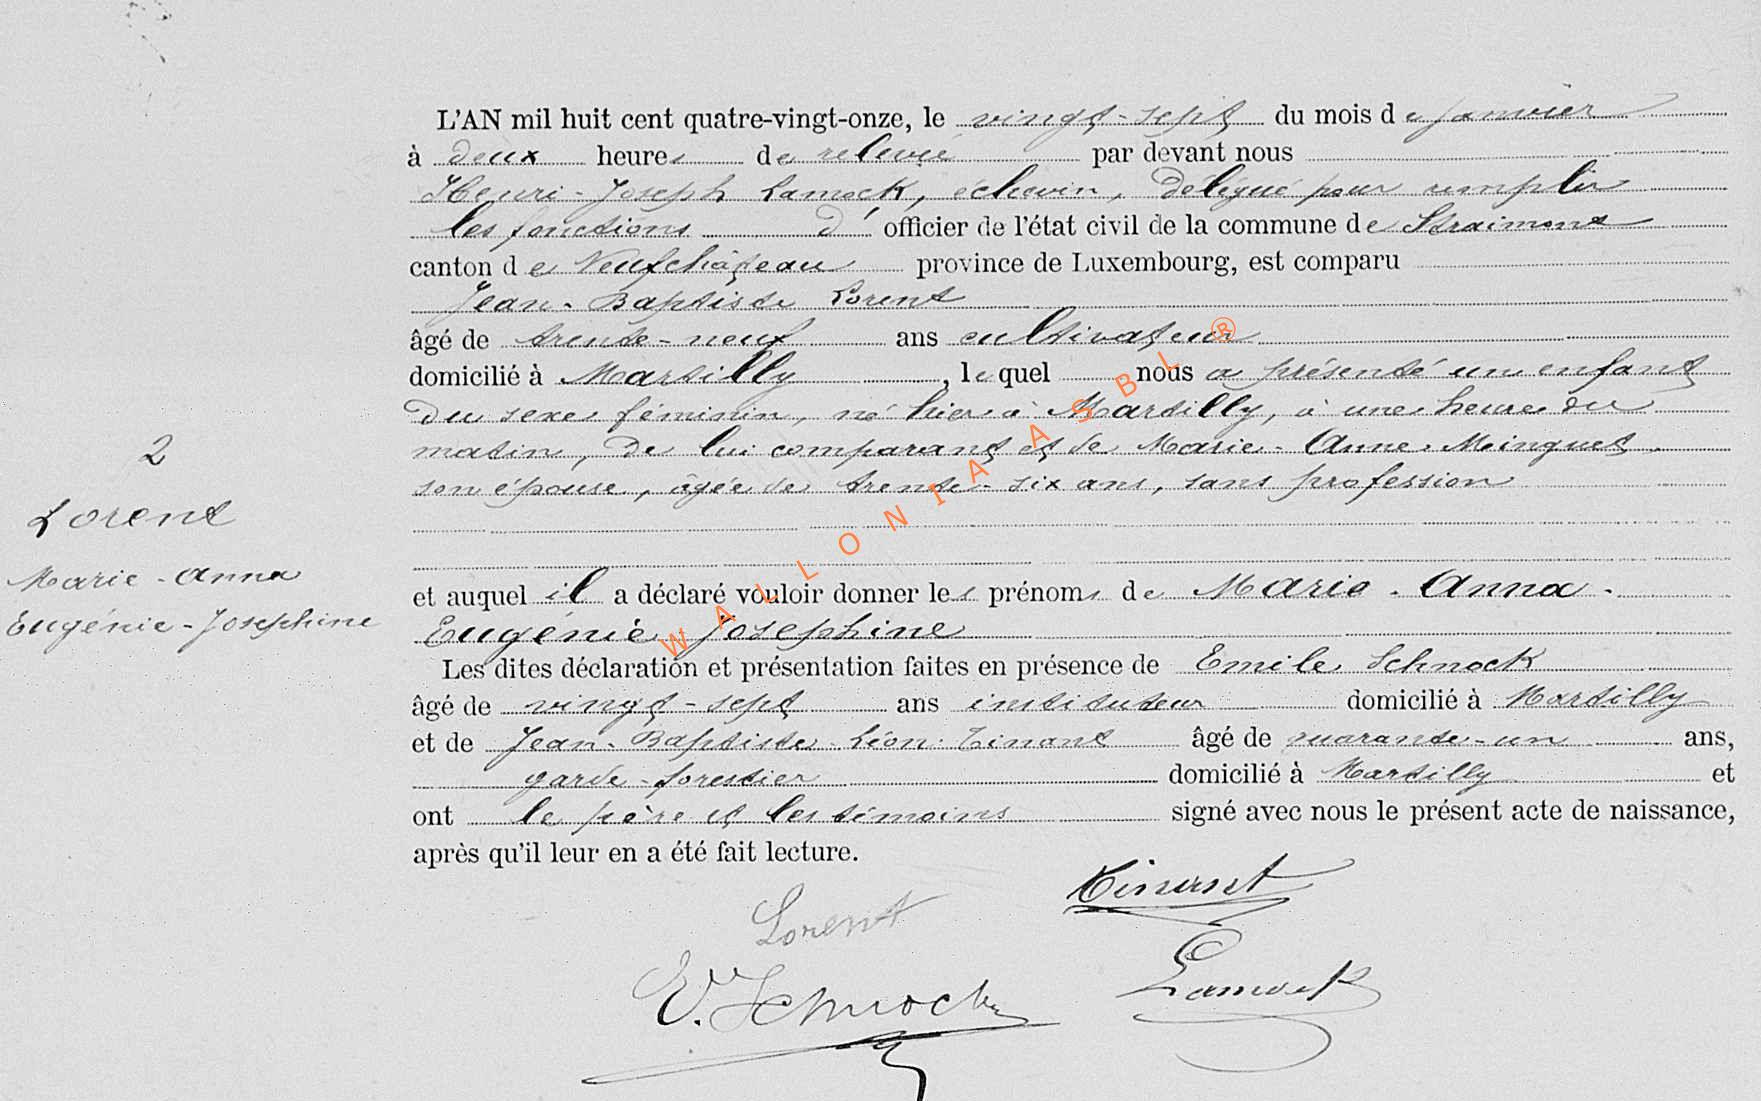 L'AN mil huit cent quatre-vingt-onze, le vingt-sept du mois de janvier
à deux heures de relevée par devant nous
Henri-Joseph Lamock, échevin, délégué pour remplir
les fonctions d'officier de l'état civil de la commune de Straimont
canton de Neufchâteau province de Luxembourg, est comparu
Jean-Baptiste Lorent
âgé de trente-neuf ans cultivateur
domicilié à Martilly, lequel nous a présenté un enfant
du sexe féminin, né hier à Martilly, à une heure du
matin, de lui comparant et de Marie-Anne Meinguet
son épouse, âgée de trente-six ans, sans profession
et auquel il a déclaré vouloir donner les prénoms de Marie-Anna-
Eugénie Josephine
Les dites déclaration et présentation faites en présence de Emile Schnock
âgé de vingt-sept ans instituteur domicilié à Martilly
et de Jean-Baptiste-Léon Tinant âgé de quarante-un ans,
garde-forestier domicilié à Martilly et
ont le père et les témoins signé avec nous le présent acte de naissance,
après qu'il leur en a été fait lecture.
2
Lorent
Marie-Anna
Eugénie-Josephine
Tinant
Lorent
E. Schnock
Lamock
WALLONIA ASBL ®